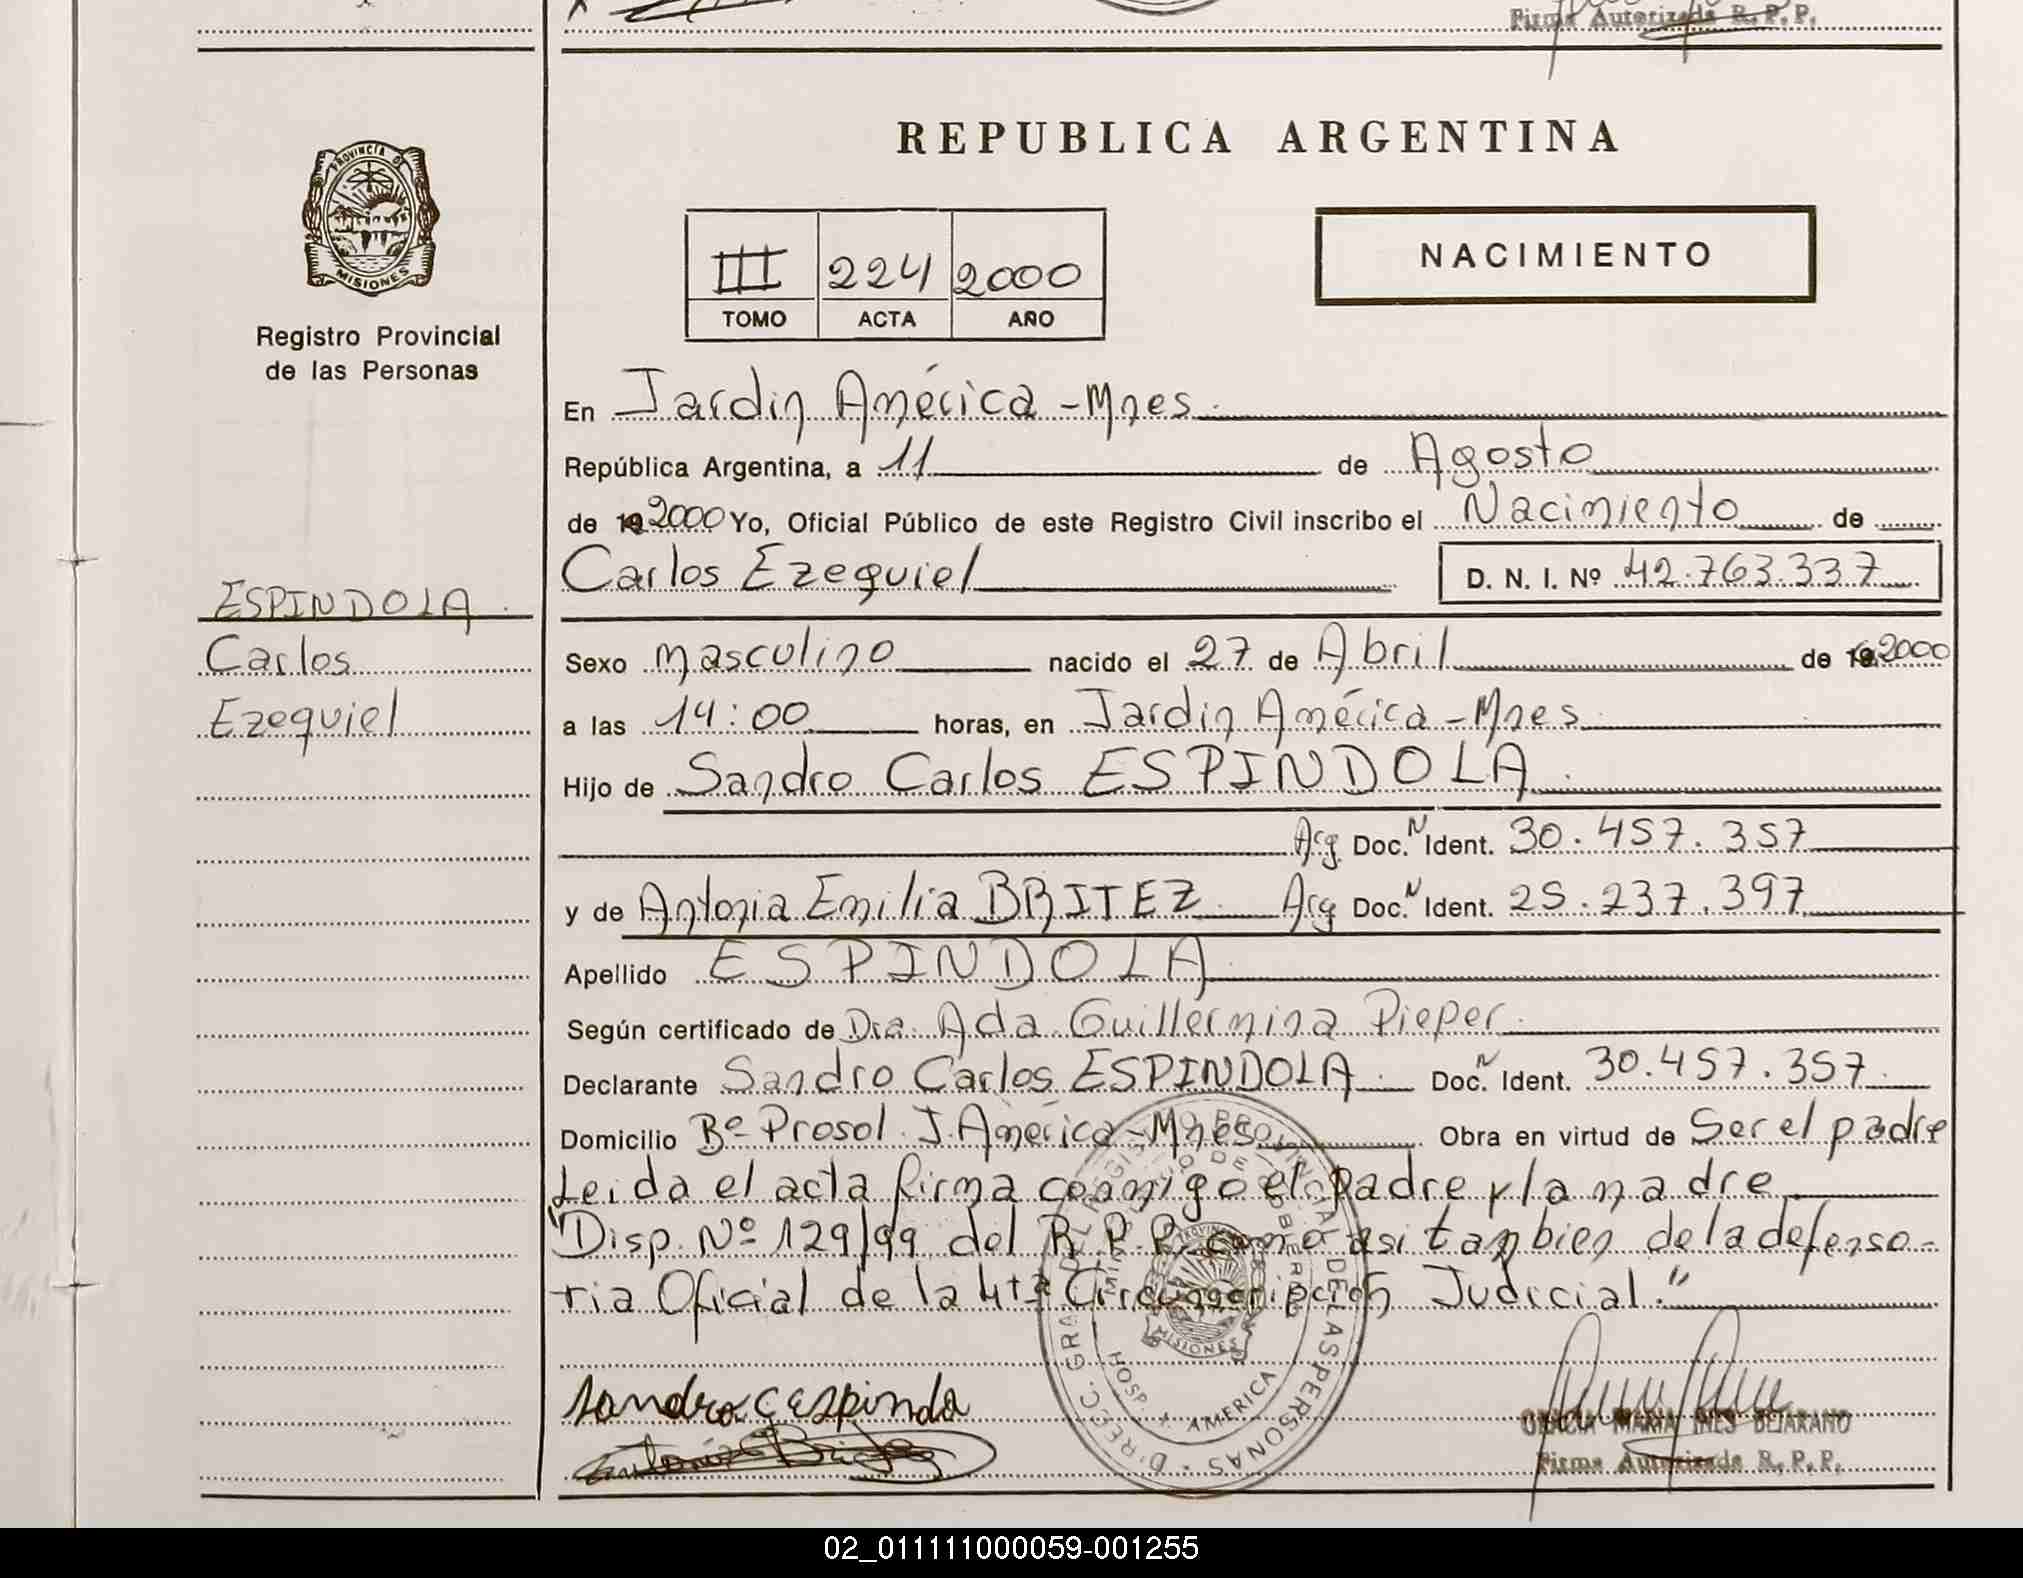 Firma Autorizada R. P. P.
REPUBLICA ARGENTINA
PROVINCIA DE
MISIONES
Registro Provincial
de las Personas
III 224 2000
TOMO ACTA AÑO
NACIMIENTO
En Jardin América - Mnes.
República Argentina, a 11 de Agosto
de 19 2000 Yo, Oficial Público de este Registro Civil inscribo el Nacimiento de
Carlos Ezequiel D. N. I. Nº 42.763.337
ESPINDOLA.
Carlos
Ezequiel
Sexo masculino nacido el 27 de Abril de 19 2000
a las 14:00 horas, en Jardin América - Mnes
Hijo de Sandro Carlos ESPINDOLA.
Arg Doc. N Ident. 30.457.357
y de Antonia Emilia BRITEZ Arg Doc. N Ident. 25.237.397
Apellido ESPINDOLA
Según certificado de Dra. Ada Guillermina Pieper.
Declarante Sandro Carlos ESPINDOLA Doc. N Ident. 30.457.357.
Domicilio Bº Prosol. J. América - Mnes Obra en virtud de Ser el padre
Leida el acta firma conmigo el padre y la madre
"Disp. Nº 129/99 del R. P. P. como asi tambien de la defenso-
ria Oficial de la 4ta Circunscripción Judicial."
HOSP. J. AMERICA
MISIONES
Sandro C Espindola
Antonia Britez
GRACIA MARIA INES BEJARANO
Firma Autorizada R. P. P.
02_011111000059-001255